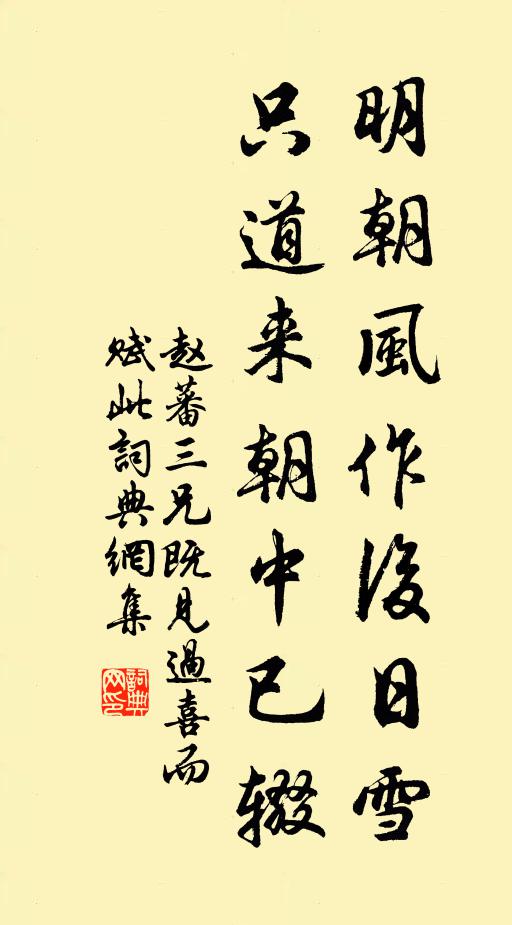 明朝風作後日雪
只道来朝中已辍
赵蕃三兄既见過喜而
赋此詞典網集
詞典網印